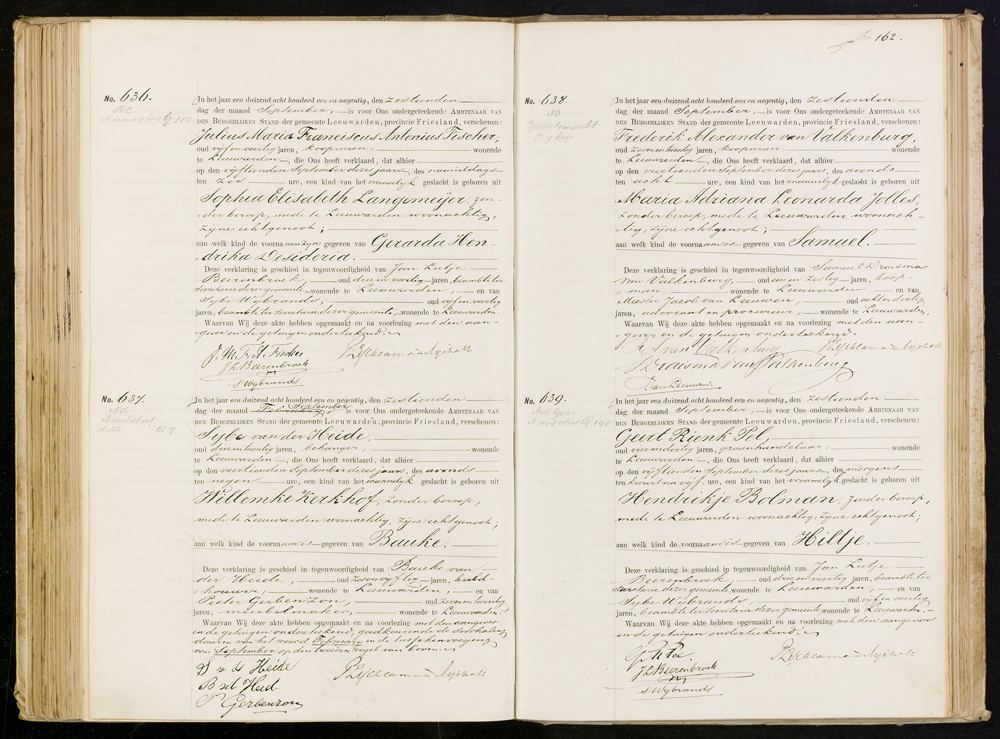 No. 636.
In het jaar een duizend acht honderd een en negentig, den zestienden
dag der maand September, is voor Ons ondergeteekende Ambtenaar van
den Burgerlijken Stand der gemeente Leeuwarden, provincie Friesland, verschenen:
Julius Maria Franciscus Antonius Fischer,
oud vijf en veertig jaren, koopman, wonende
te Leeuwarden, die Ons heeft verklaard, dat alhier
op den vijftienden September dezes jaars, des namiddags
ten zes ure, een kind van het geslacht is geboren uit
Sophia Elisabeth Langemeijer, zon-
der beroep, mede te Leeuwarden woonachtig,
zijne echtgenoot;
aan welk kind de voornamen zijn gegeven van Gerarda Hen-
drika Desideria.
Deze verklaring is geschied in tegenwoordigheid van Jan Lutje
Beerenbroek, oud drie en veertig jaren, beambte ter
secretarie dezer gemeente, wonende te Leeuwarden, en van
Sybe Wybrands, oud vijf en veertig
jaren, beambte ter secretarie dezer gemeente, wonende te Leeuwarden.
Waarvan Wij deze akte hebben opgemaakt en na voorlezing met den aan-
gever en de getuigen onderteekend.
J. M. F. A. Fischer
J L Beerenbroek
S Wybrands
No. 637.
In het jaar een duizend acht honderd een en negentig, den zestienden
September
dag der maand Februarij, is voor Ons ondergeteekende Ambtenaar van
den Burgerlijken Stand der gemeente Leeuwarden, provincie Friesland, verschenen:
Sybe van der Heide,
oud drie en twintig jaren, behanger, wonende
te Leeuwarden, die Ons heeft verklaard, dat alhier
op den veertienden September dezes jaars, des avonds
ten negen ure, een kind van het mannelijk geslacht is geboren uit
Willemke Kerkhof, zonder beroep,
mede te Leeuwarden woonachtig, zijne echtgenoot;
aan welk kind de voornaam is gegeven van Bauke.
Deze verklaring is geschied in tegenwoordigheid van Bauke van
der Heide, oud zeven en vijftig jaren, beeld-
houwer, wonende te Leeuwarden, en van
Pieter Gerbenzon, oud zeven en twintig
jaren, meubelmaker, wonende te Leeuwarden.
Waarvan Wij deze akte hebben opgemaakt en na voorlezing met den aangever
en de getuigen onderteekend, goedkeurende de doorhaling
van het woord Februarij en de tusschenvoeging
van September op den tweeden regel van boven.
S v d Heide
B vd Heide
P Gerbenzon
162.
No. 638.
In het jaar een duizend acht honderd een en negentig, den zestienden
dag der maand September, is voor Ons ondergeteekende Ambtenaar van
den Burgerlijken Stand der gemeente Leeuwarden, provincie Friesland, verschenen:
Frederik Alexander van Valkenburg,
oud zeven en twintig jaren, koopman, wonende
te Leeuwarden, die Ons heeft verklaard, dat alhier
op den veertienden September dezes jaars, des avonds
ten acht ure, een kind van het mannelijk geslacht is geboren uit
Maria Adriana Leonarda Jolles,
zonder beroep, mede te Leeuwarden woonach-
tig, zijne echtgenoot;
aan welk kind de voornaam is gegeven van Samuel.
Deze verklaring is geschied in tegenwoordigheid van Samuel Draisma
van Valkenburg, oud een en zestig jaren, koop-
man, wonende te Leeuwarden, en van
Meester Jacob van Leeuwen, oud acht en dertig
jaren, advocaat en procureur, wonende te Leeuwarden.
Waarvan Wij deze akte hebben opgemaakt en na voorlezing met den aan-
gever en de getuigen onderteekend.
F A van Valkenburg
S Draisma van Valkenburg
J van Leeuwen
No. 639.
In het jaar een duizend acht honderd een en negentig, den zestienden
dag der maand September, is voor Ons ondergeteekende Ambtenaar van
den Burgerlijken Stand der gemeente Leeuwarden, provincie Friesland, verschenen:
Geert Rienk Pel,
oud vier en dertig jaren, graanhandelaar, wonende
te Leeuwarden, die Ons heeft verklaard, dat alhier
op den vijftienden September dezes jaars, des morgens
ten kwart na vijf ure, een kind van het vrouwelijk geslacht is geboren uit
Hendrikje Bolman, zonder beroep,
mede te Leeuwarden woonachtig, zijne echtgenoot;
aan welk kind de voornaam is gegeven van Hiltje.
Deze verklaring is geschied in tegenwoordigheid van Jan Lutje
Beerenbroek, oud drie en veertig jaren, beambte ter
secretarie dezer gemeente, wonende te Leeuwarden, en van
Sybe Wybrands, oud vijf en veertig
jaren, beambte ter secretarie dezer gemeente, wonende te Leeuwarden.
Waarvan Wij deze akte hebben opgemaakt en na voorlezing met den aangever
en de getuigen onderteekend.
G R Pel
J L Beerenbroek
S Wybrands